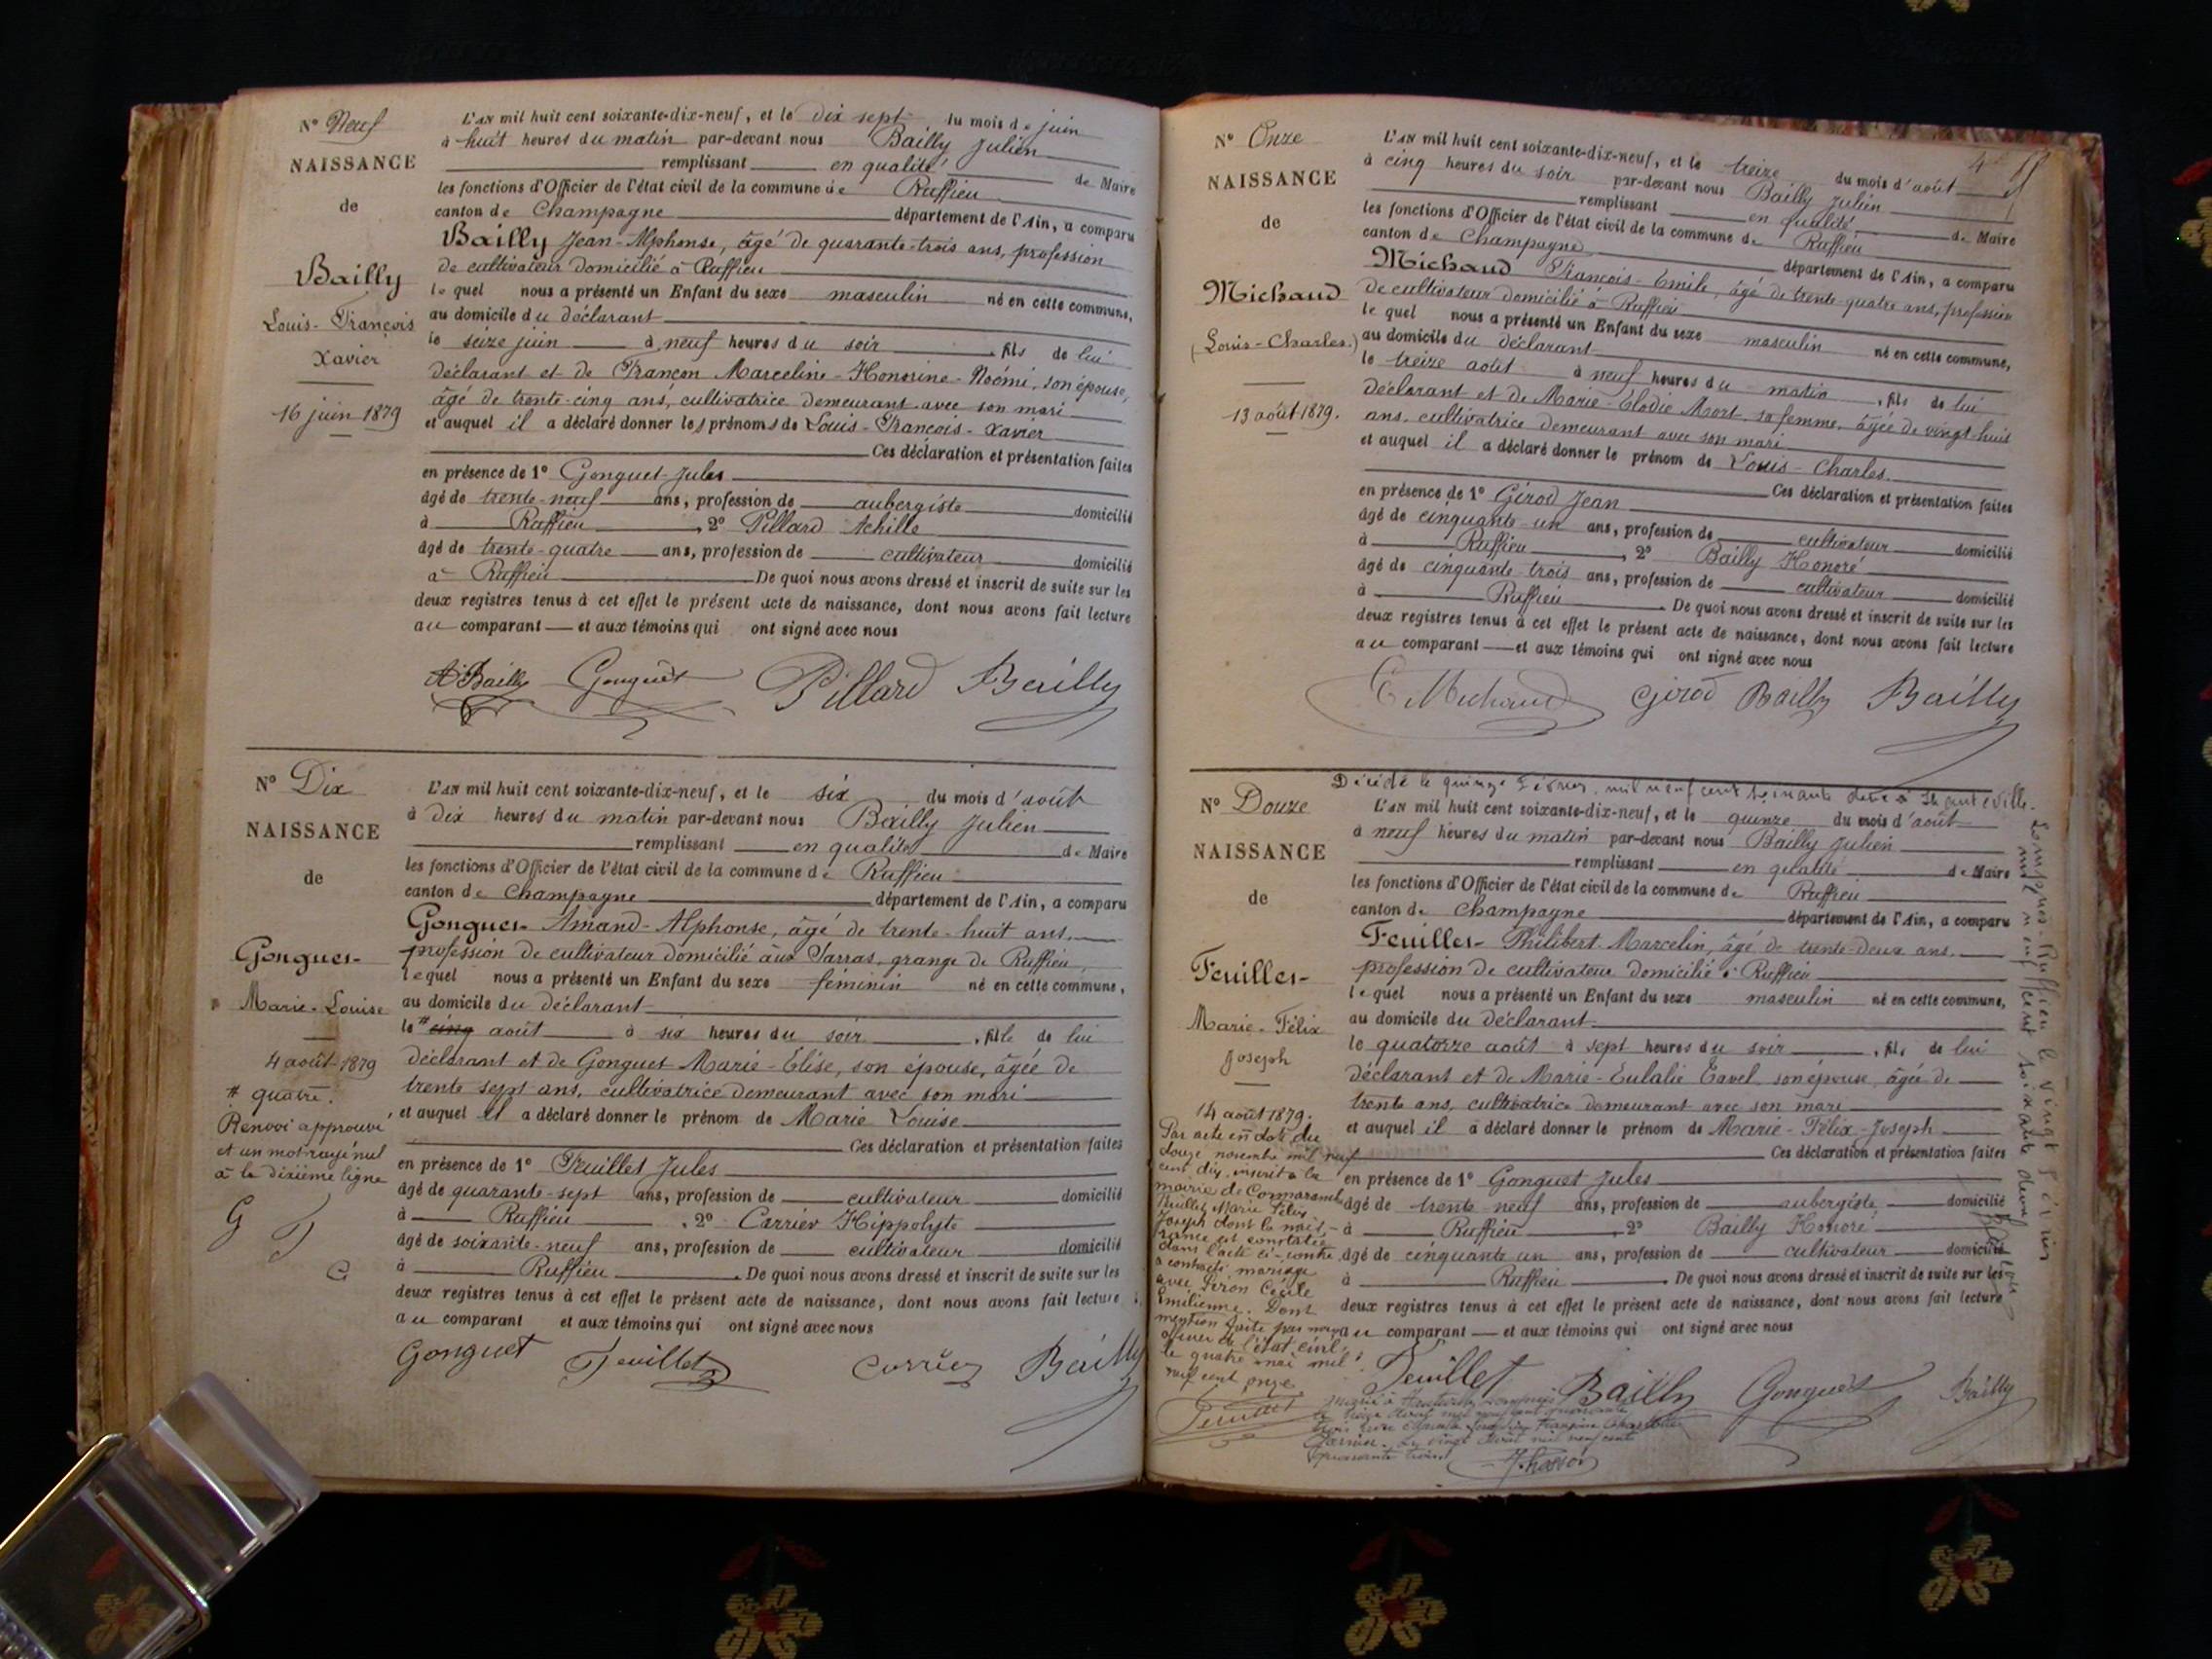 N° Neuf
NAISSANCE
de
Bailly
Louis-François
Xavier
16 juin 1879
L'an mil huit cent soixante-dix-neuf, et le dix sept du mois de juin
à huit heures du matin par-devant nous Bailly Julien
remplissant en qualité de Maire
les fonctions d'Officier de l'état civil de la commune de Ruffieu
canton de Champagne département de l'Ain, a comparu
Bailly Jean-Alphonse, âgé de quarante-trois ans, profession
de cultivateur domicilié à Ruffieu
lequel nous a présenté un Enfant du sexe masculin né en cette commune,
au domicile du déclarant
le seize juin à neuf heures du soir, fils de lui
déclarant et de Françon Marceline-Honorine-Noémi, son épouse,
âgé de trente-cinq ans, cultivatrice demeurant avec son mari
et auquel il a déclaré donner les prénoms de Louis-François-Xavier
Ces déclaration et présentation faites
en présence de 1° Gonguet Jules
âgé de trente-neuf ans, profession de aubergiste domicilié
à Ruffieu, 2° Pillard Achille
âgé de trente-quatre ans, profession de cultivateur domicilié
à Ruffieu De quoi nous avons dressé et inscrit de suite sur les
deux registres tenus à cet effet le présent acte de naissance, dont nous avons fait lecture
au comparant et aux témoins qui ont signé avec nous
A Bailly Gonguet Pillard Bailly
N° Dix
NAISSANCE
de
Gonguet
Marie-Louise
4 août 1879
# quatre.
Renvoi approuvé
et un mot rayé nul
à la dixième ligne
G F
C
L'an mil huit cent soixante-dix-neuf, et le six du mois d'août
à dix heures du matin par-devant nous Bailly Julien
remplissant en qualité de Maire
les fonctions d'Officier de l'état civil de la commune de Ruffieu
canton de Champagne département de l'Ain, a comparu
Gonguet Amand-Alphonse, âgé de trente-huit ans,
profession de cultivateur domicilié aux Sarras, grange de Ruffieu
lequel nous a présenté un Enfant du sexe féminin né en cette commune,
au domicile du déclarant
le # cinq août à six heures du soir, fille de lui
déclarant et de Gonguet Marie-Elise, son épouse, âgée de
trente sept ans, cultivatrice demeurant avec son mari
et auquel il a déclaré donner le prénom de Marie Louise
Ces déclaration et présentation faites
en présence de 1° Feuillet Jules
âgé de quarante-sept ans, profession de cultivateur domicilié
à Ruffieu, 2° Carrier Hippolyte
âgé de soixante-neuf ans, profession de cultivateur domicilié
à Ruffieu. De quoi nous avons dressé et inscrit de suite sur les
deux registres tenus à cet effet le présent acte de naissance, dont nous avons fait lecture
au comparant et aux témoins qui ont signé avec nous
Gonguet Feuillet Carrier Bailly
N° Onze
NAISSANCE
de
Michaud
(Louis-Charles.)
13 août 1879.
L'an mil huit cent soixante-dix-neuf, et le treize du mois d'août
à cinq heures du soir par-devant nous Bailly Julien
remplissant en qualité de Maire
les fonctions d'Officier de l'état civil de la commune de Ruffieu
canton de Champagne département de l'Ain, a comparu
Michaud François-Emile, âgé de trente-quatre ans, profession
de cultivateur domicilié à Ruffieu
lequel nous a présenté un Enfant du sexe masculin né en cette commune,
au domicile du déclarant
le treize août à neuf heures du matin, fils de lui
déclarant et de Marie-Elodie Mort, sa femme, âgée de vingt-huit
ans, cultivatrice demeurant avec son mari
et auquel il a déclaré donner le prénom de Louis-Charles.
Ces déclaration et présentation faites
en présence de 1° Girod Jean
âgé de cinquante-un ans, profession de cultivateur domicilié
à Ruffieu, 2° Bailly Honoré
âgé de cinquante-trois ans, profession de cultivateur domicilié
à Ruffieu. De quoi nous avons dressé et inscrit de suite sur les
deux registres tenus à cet effet le présent acte de naissance, dont nous avons fait lecture
au comparant et aux témoins qui ont signé avec nous
E Michaud Girod Bailly Bailly
Décédé le quinze Février mil neuf cent soixante deux à Hauteville-
Lompnes. Ruffieu le vingt Février
mil neuf cent soixante deux
N° Douze
NAISSANCE
de
Feuillet
Marie-Félix
Joseph
14 août 1879.
Par acte en date du
douze novembre mil neuf
cent dix, inscrit à la
mairie de
Feuillet Marie Félix
Joseph dont la nais-
sance est constatée
dans l'acte ci-contre
a contracté mariage
avec Cécile
Emilienne. Dont
mention faite par nous
officier de l'état civil,
le quatre mai mil
neuf cent onze
L'an mil huit cent soixante-dix-neuf, et le quinze du mois d'août
à neuf heures du matin par-devant nous Bailly Julien
remplissant en qualité de Maire
les fonctions d'Officier de l'état civil de la commune de Ruffieu
canton de Champagne département de l'Ain, a comparu
Feuillet Philibert-Marcelin, âgé de trente-deux ans,
profession de cultivateur domicilié à Ruffieu
lequel nous a présenté un Enfant du sexe masculin né en cette commune,
au domicile du déclarant.
le quatorze août à sept heures du soir, fils de lui
déclarant et de Marie-Eulalie son épouse, âgée de
trente ans, cultivatrice demeurant avec son mari
et auquel il a déclaré donner le prénom de Marie-Félix-Joseph
Ces déclaration et présentation faites
en présence de 1° Gonguet Jules
âgé de trente neuf ans, profession de aubergiste domicilié
à Ruffieu, 2° Bailly Honoré
âgé de cinquante un ans, profession de cultivateur domicilié
à Ruffieu. De quoi nous avons dressé et inscrit de suite sur les
deux registres tenus à cet effet le présent acte de naissance, dont nous avons fait lecture
au comparant et aux témoins qui ont signé avec nous
Feuillet Bailly Gonguet Bailly
Feuillet